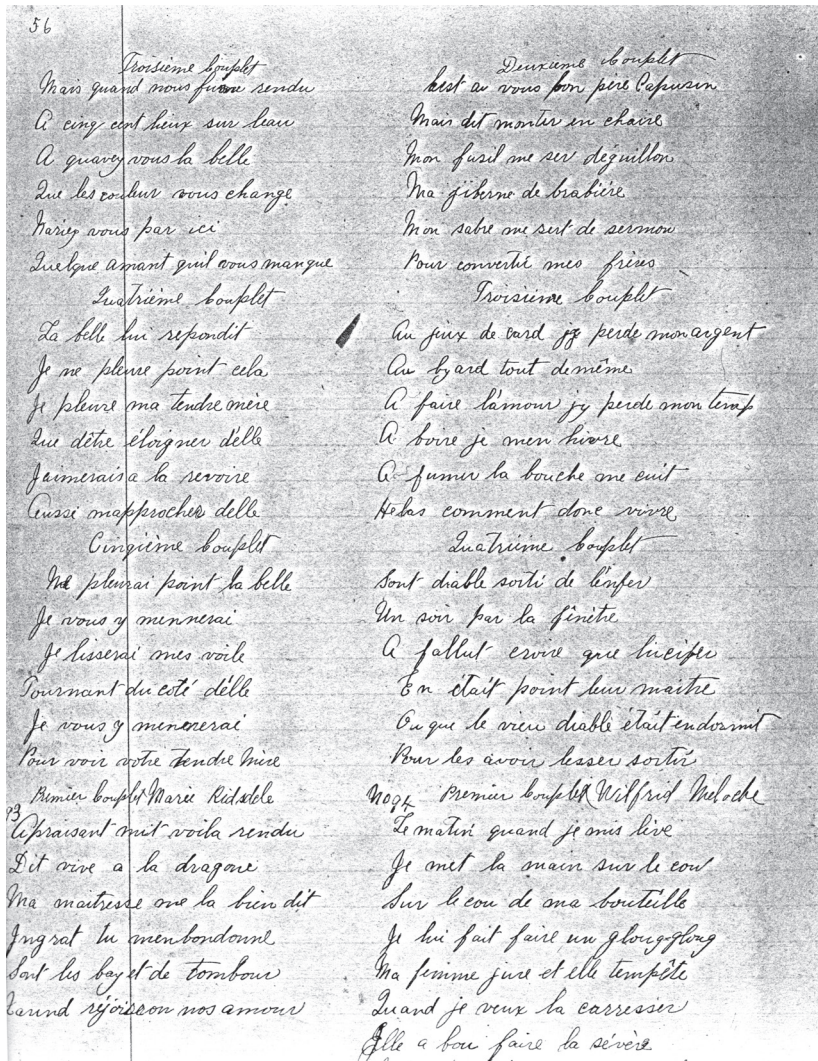 56
Troisième Couplet
Mais quand nous fume rendu
A cinq cent lieux sur leau
A quavez vous la belle
Que les couleur vous change
Mariez vous par ici
Quelque amant quil vous manque
Quatrième Couplet
La belle lui repondit
Je ne pleure point cela
Je pleure ma tendre mère
Que dêtre éloigner d'elle
Jaimerais a la revoire
Aussi mapprocher delle
Cinqième Couplet
Ne pleurai point la belle
Je vous y mennerai
Je lisserai mes voile
Tournant du coté d'élle
Je vous y mennerai
Pour voir votre tendre Mire
Primier Couplet Marie Ridsdele
93
Apraisant mit voila rendu
Dit vive a la dragone
Ma maitresse me la bien dit
Ingrat tu menbondonne
Sont les bay et de tombour
rejoisson nos amour
Deuxieme Couplet
best au vous bon père Capusin
Mais dit monter en chaire
Mon fusil me ser déguillon
Ma giberne de brabiére
Mon sabre me sert de sermon
Pour convertir mes frères
Troisième Couplet
Au jeux de card jy perde mon argent
Au byard tout demême
A faire lámour jy perde mon temp
A boire je men hivre
A fumer la bouche me cuit
Helas comment donc vivre
Quatrième Couplet
Sont diable sorti de lenfer
Un soir par la finêtre
A fallut croire que lucifer
En était point leur maitre
Ou que le vieu diable était endormit
Pour les avoir lesser sortir
No 94 Premier Couplet Wilfrid Meloche
Le matin quand je mis live
Je met la main sur le cou
Sur le cou de ma bouteille
Je lui fait faire un gloug-gloug
Ma femme jure et elle tempête
Quand je veux la carresser
Elle a bou faire la sévère